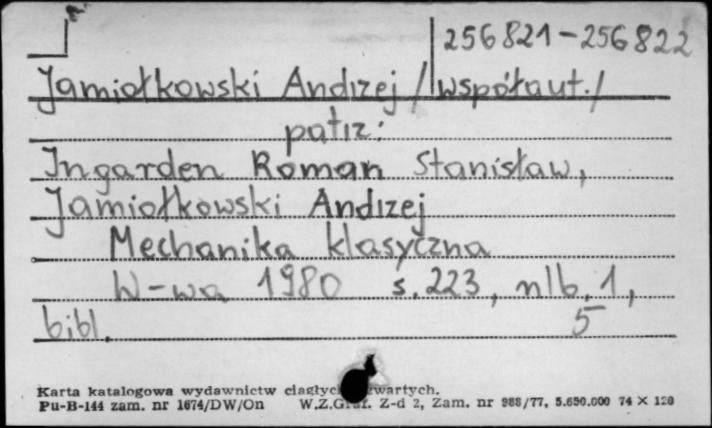 256821-256822
Jamiołkowski Andrzej /współaut./
patrz:
Ingarden Roman Stanisław,
Jamiołkowski Andrzej
Mechanika klasyczna
W-wa 1980 s. 223, nlb. 1,
bibl. 5
Karta katalogowa wydawnictw ciągłych
Pu-B-144 zam. nr 1674/DW/On W.Z.Graf. Z-d 2, Zam. nr 988/77, 5.650.000 74 × 120